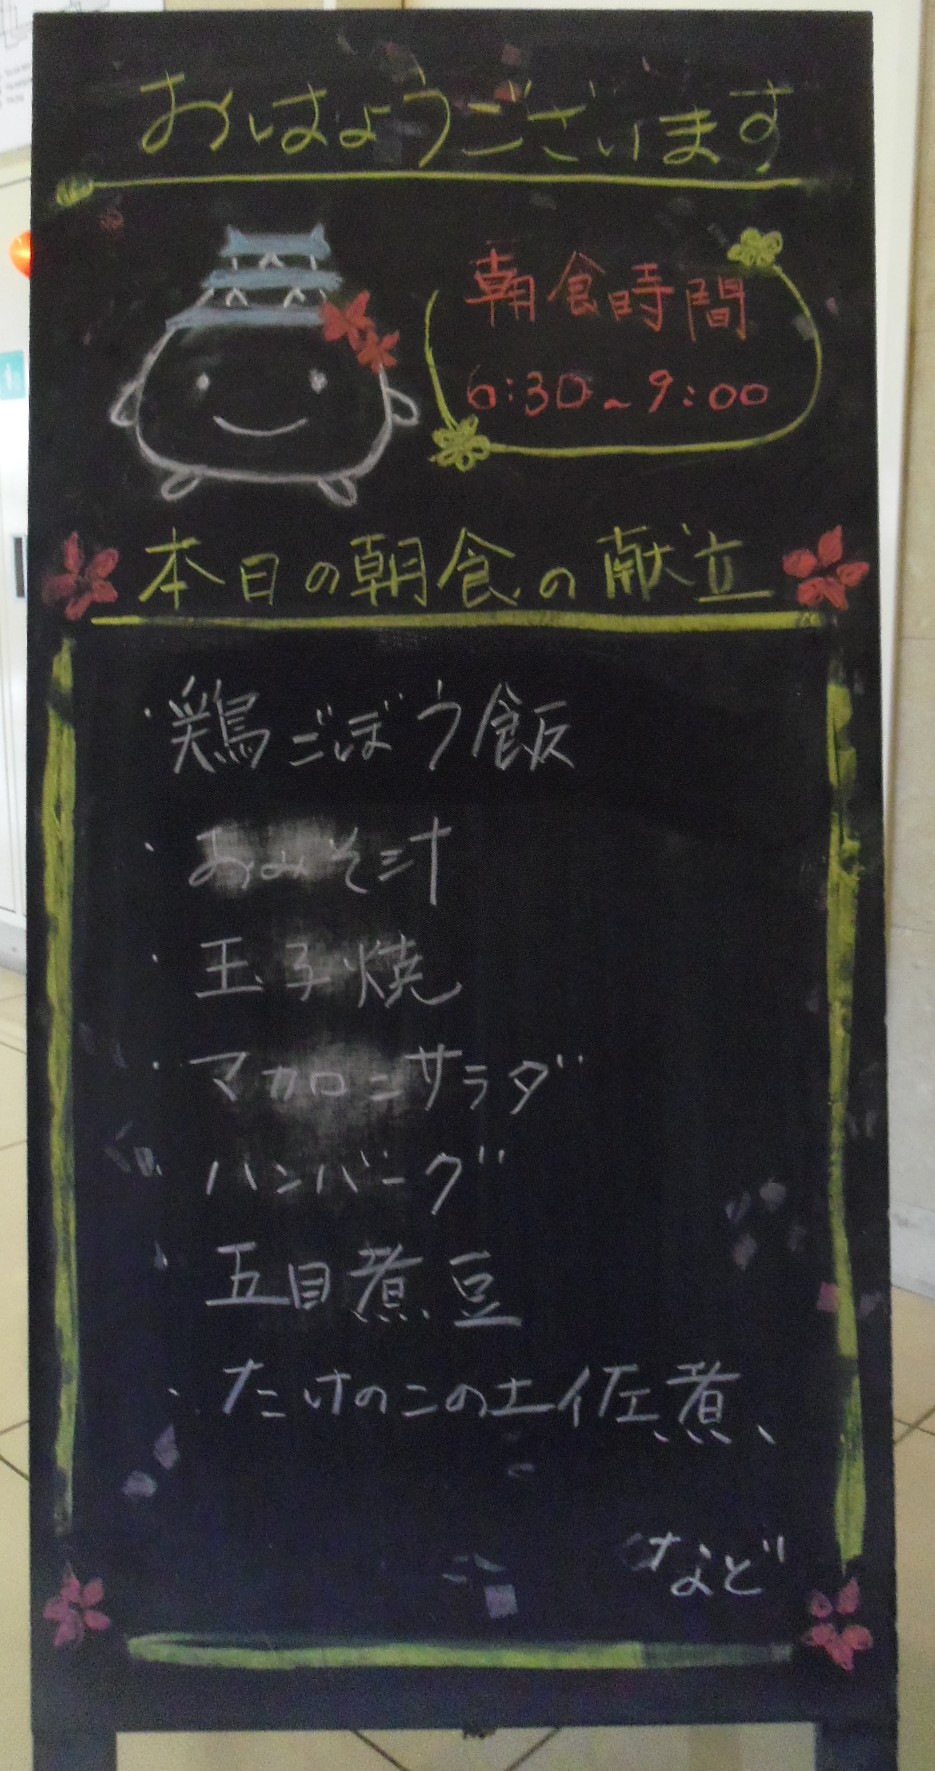 おはようございます
朝食時間
6:30~9:00
本日の朝食の献立
・鶏ごぼう飯
・おみそ汁
・玉子焼
・マカロニサラダ
・ハンバーグ
・五目煮豆
・たけのこの土佐煮
など